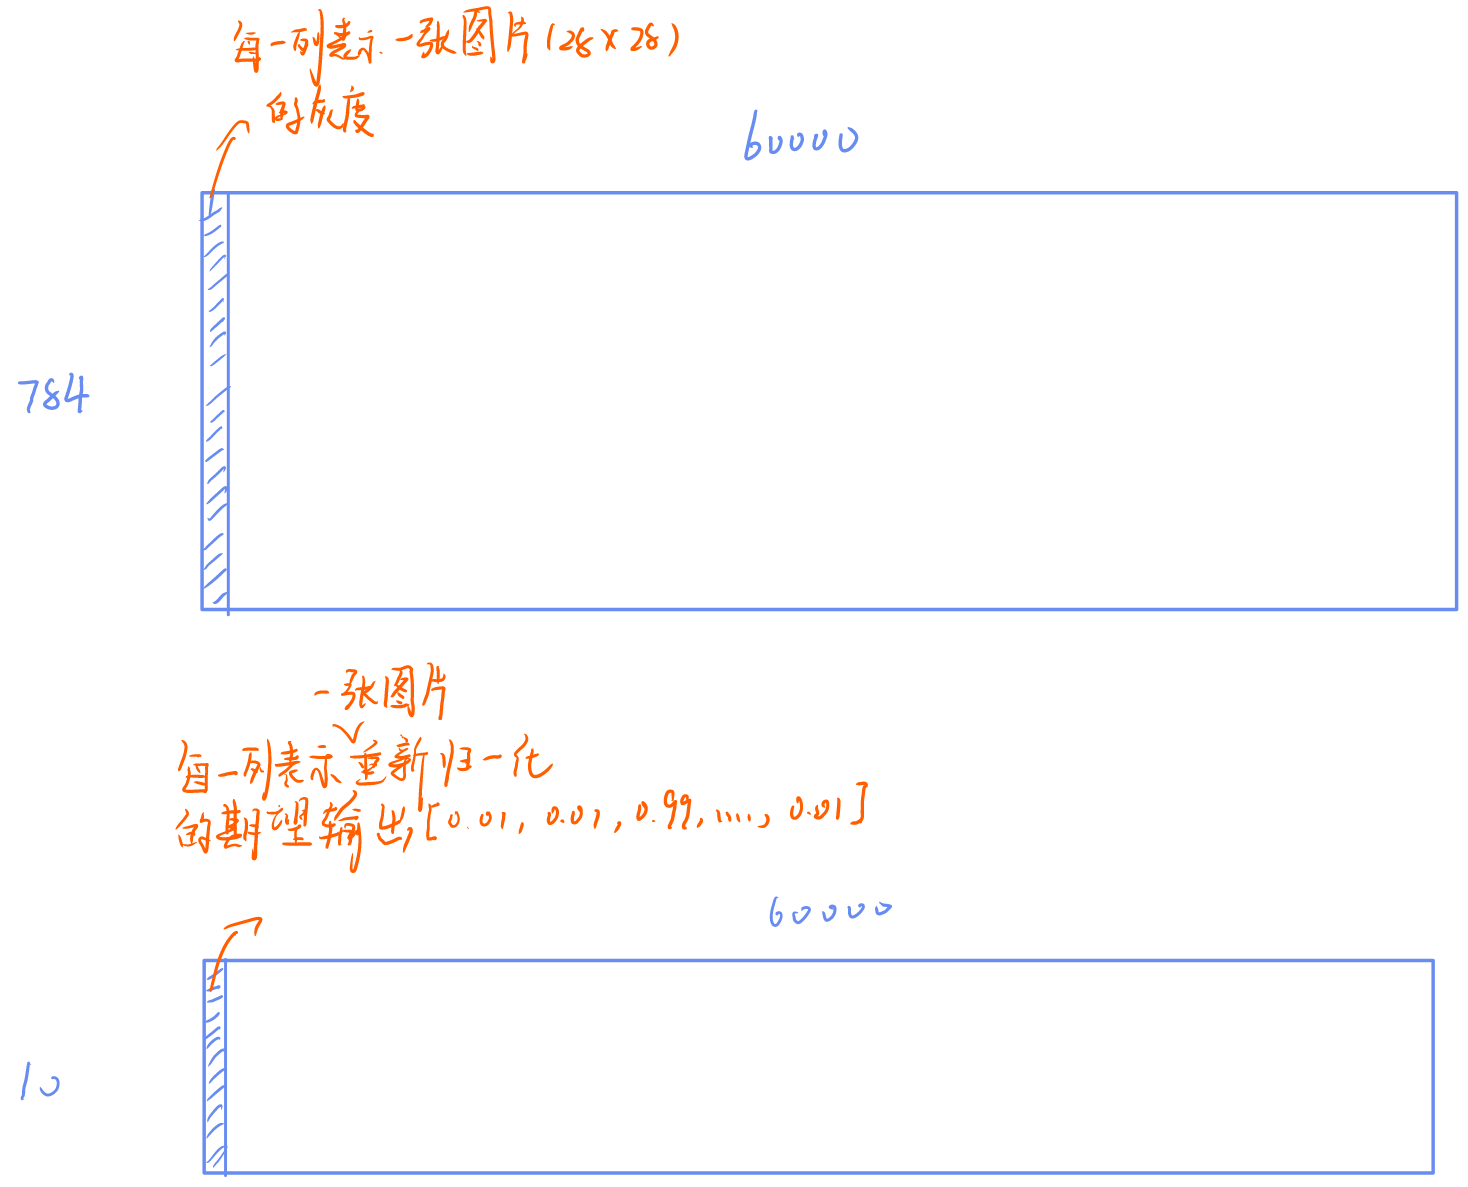 每一列表示一张图片(28×28)
的灰度
60000
784
一张图片
每一列表示重新归一化
的期望输出,[0.01, 0.01, 0.99, ...., 0.01]
60000
10